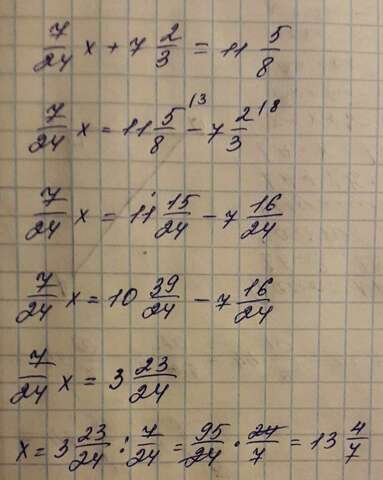 7/24 x + 7 2/3 = 11 5/8
7/24 x = 11 5/8 /3 - 7 2/3 /8
7/24 x = 11 15/24 - 7 16/24
7/24 x = 10 39/24 - 7 16/24
7/24 x = 3 23/24
x = 3 23/24 : 7/24 = 95/24 · 24/7 = 13 4/7